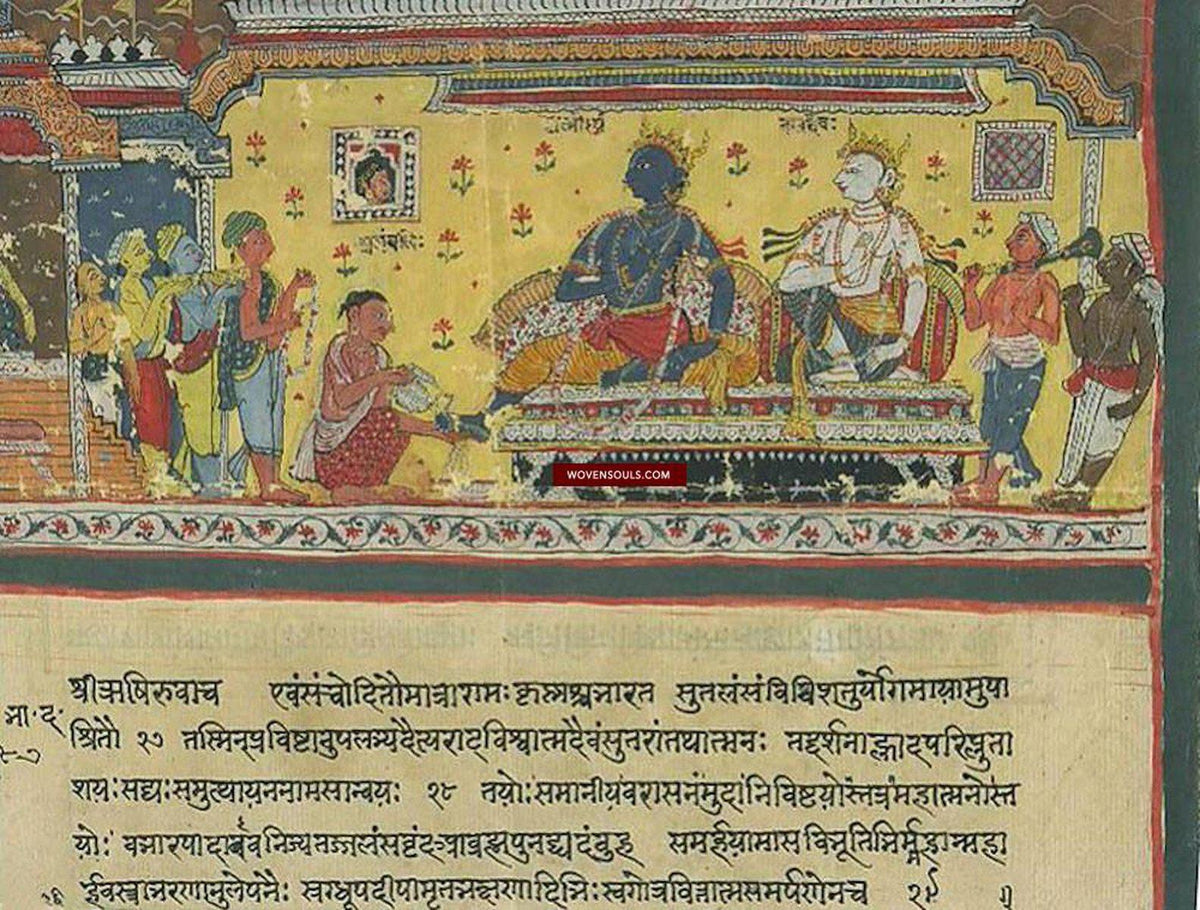 सवदेवः
WOVENSOULS.COM
श्रीऋषिरुवाच एवंसंचोदितौमात्रारामःकृष्णश्चभारत सुतलंसंविविशतुर्योगमायामुपा
भा·द·
श्रितौ २७ तस्मिन्प्रविष्टावुपलभ्यदैत्यराट्विश्वात्मदैवंसुतरांतथात्मनः तद्दर्शनाह्लादपरिप्लुता
८७
शयःसद्यःसमुत्थायननामसान्वयः २८ तयोःसमानीयवरासनंमुदानिविष्टयोस्तत्रमहात्मनोस्त
योः दधारपादाववनिज्यतज्जलंसवृंदआब्रह्मपुनद्यदंबुह समर्हयामासविभूतिभिर्महान्महा
र्हवस्त्राभरणानुलेपनैः स्रग्धूपदीपामृतभक्षणादिभिःस्वगोत्रवित्तात्मसमर्पणेनच २९ ॥